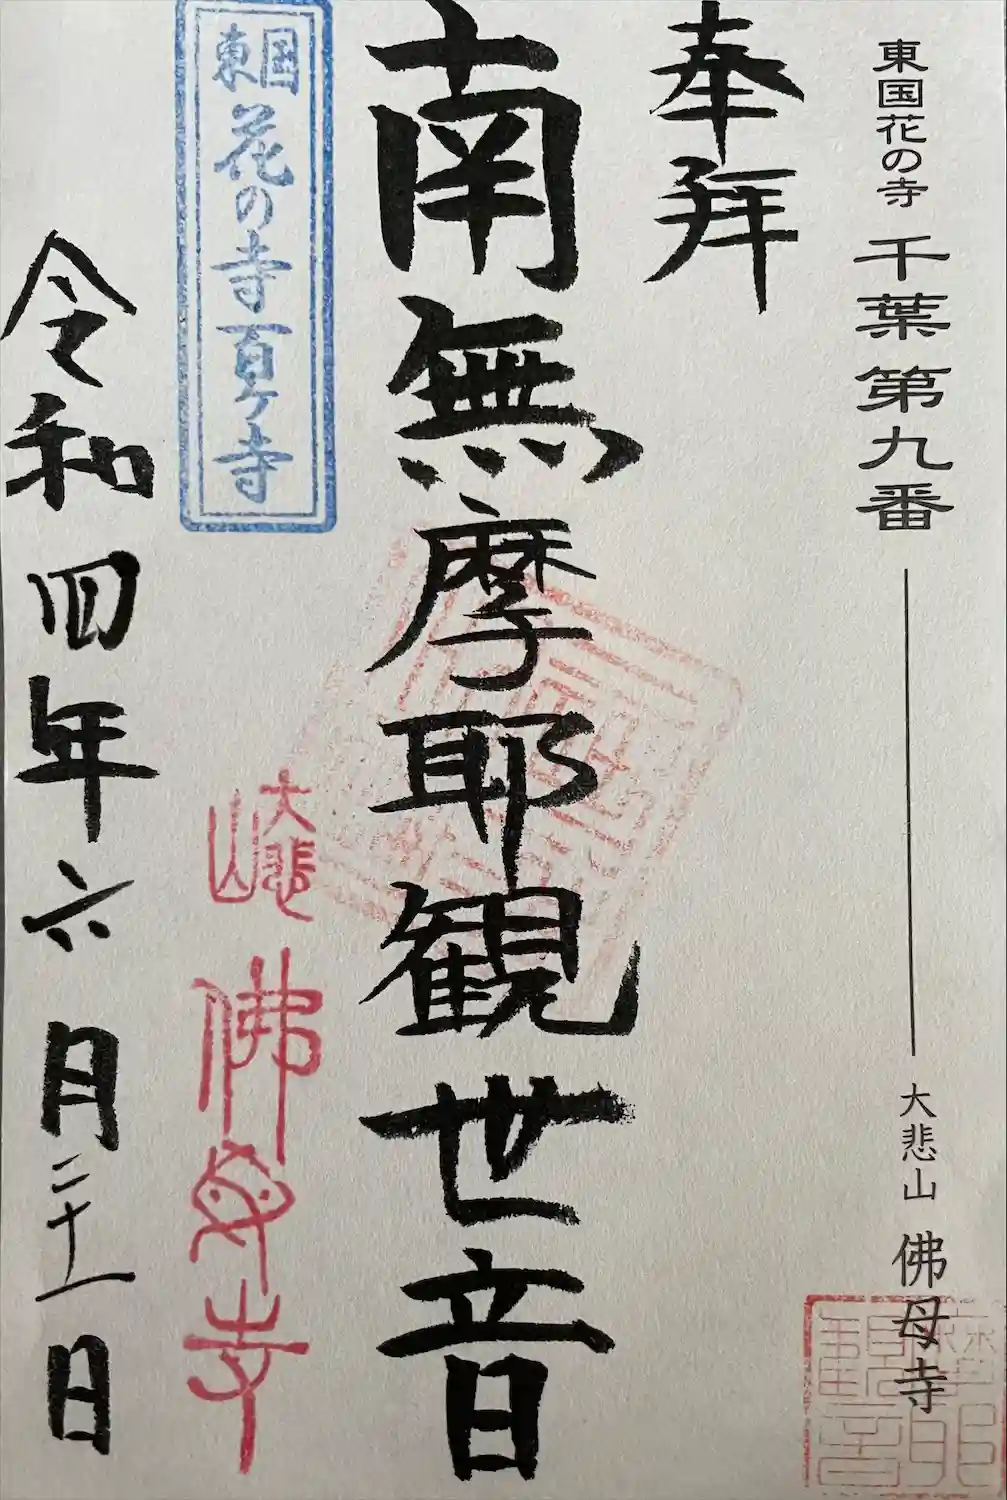 東国花の寺 千葉第九番 大悲山 佛母寺
奉拝
南無摩耶観世音
東国花の寺百ヶ寺
大悲山 佛母寺
令和四年六月二十一日